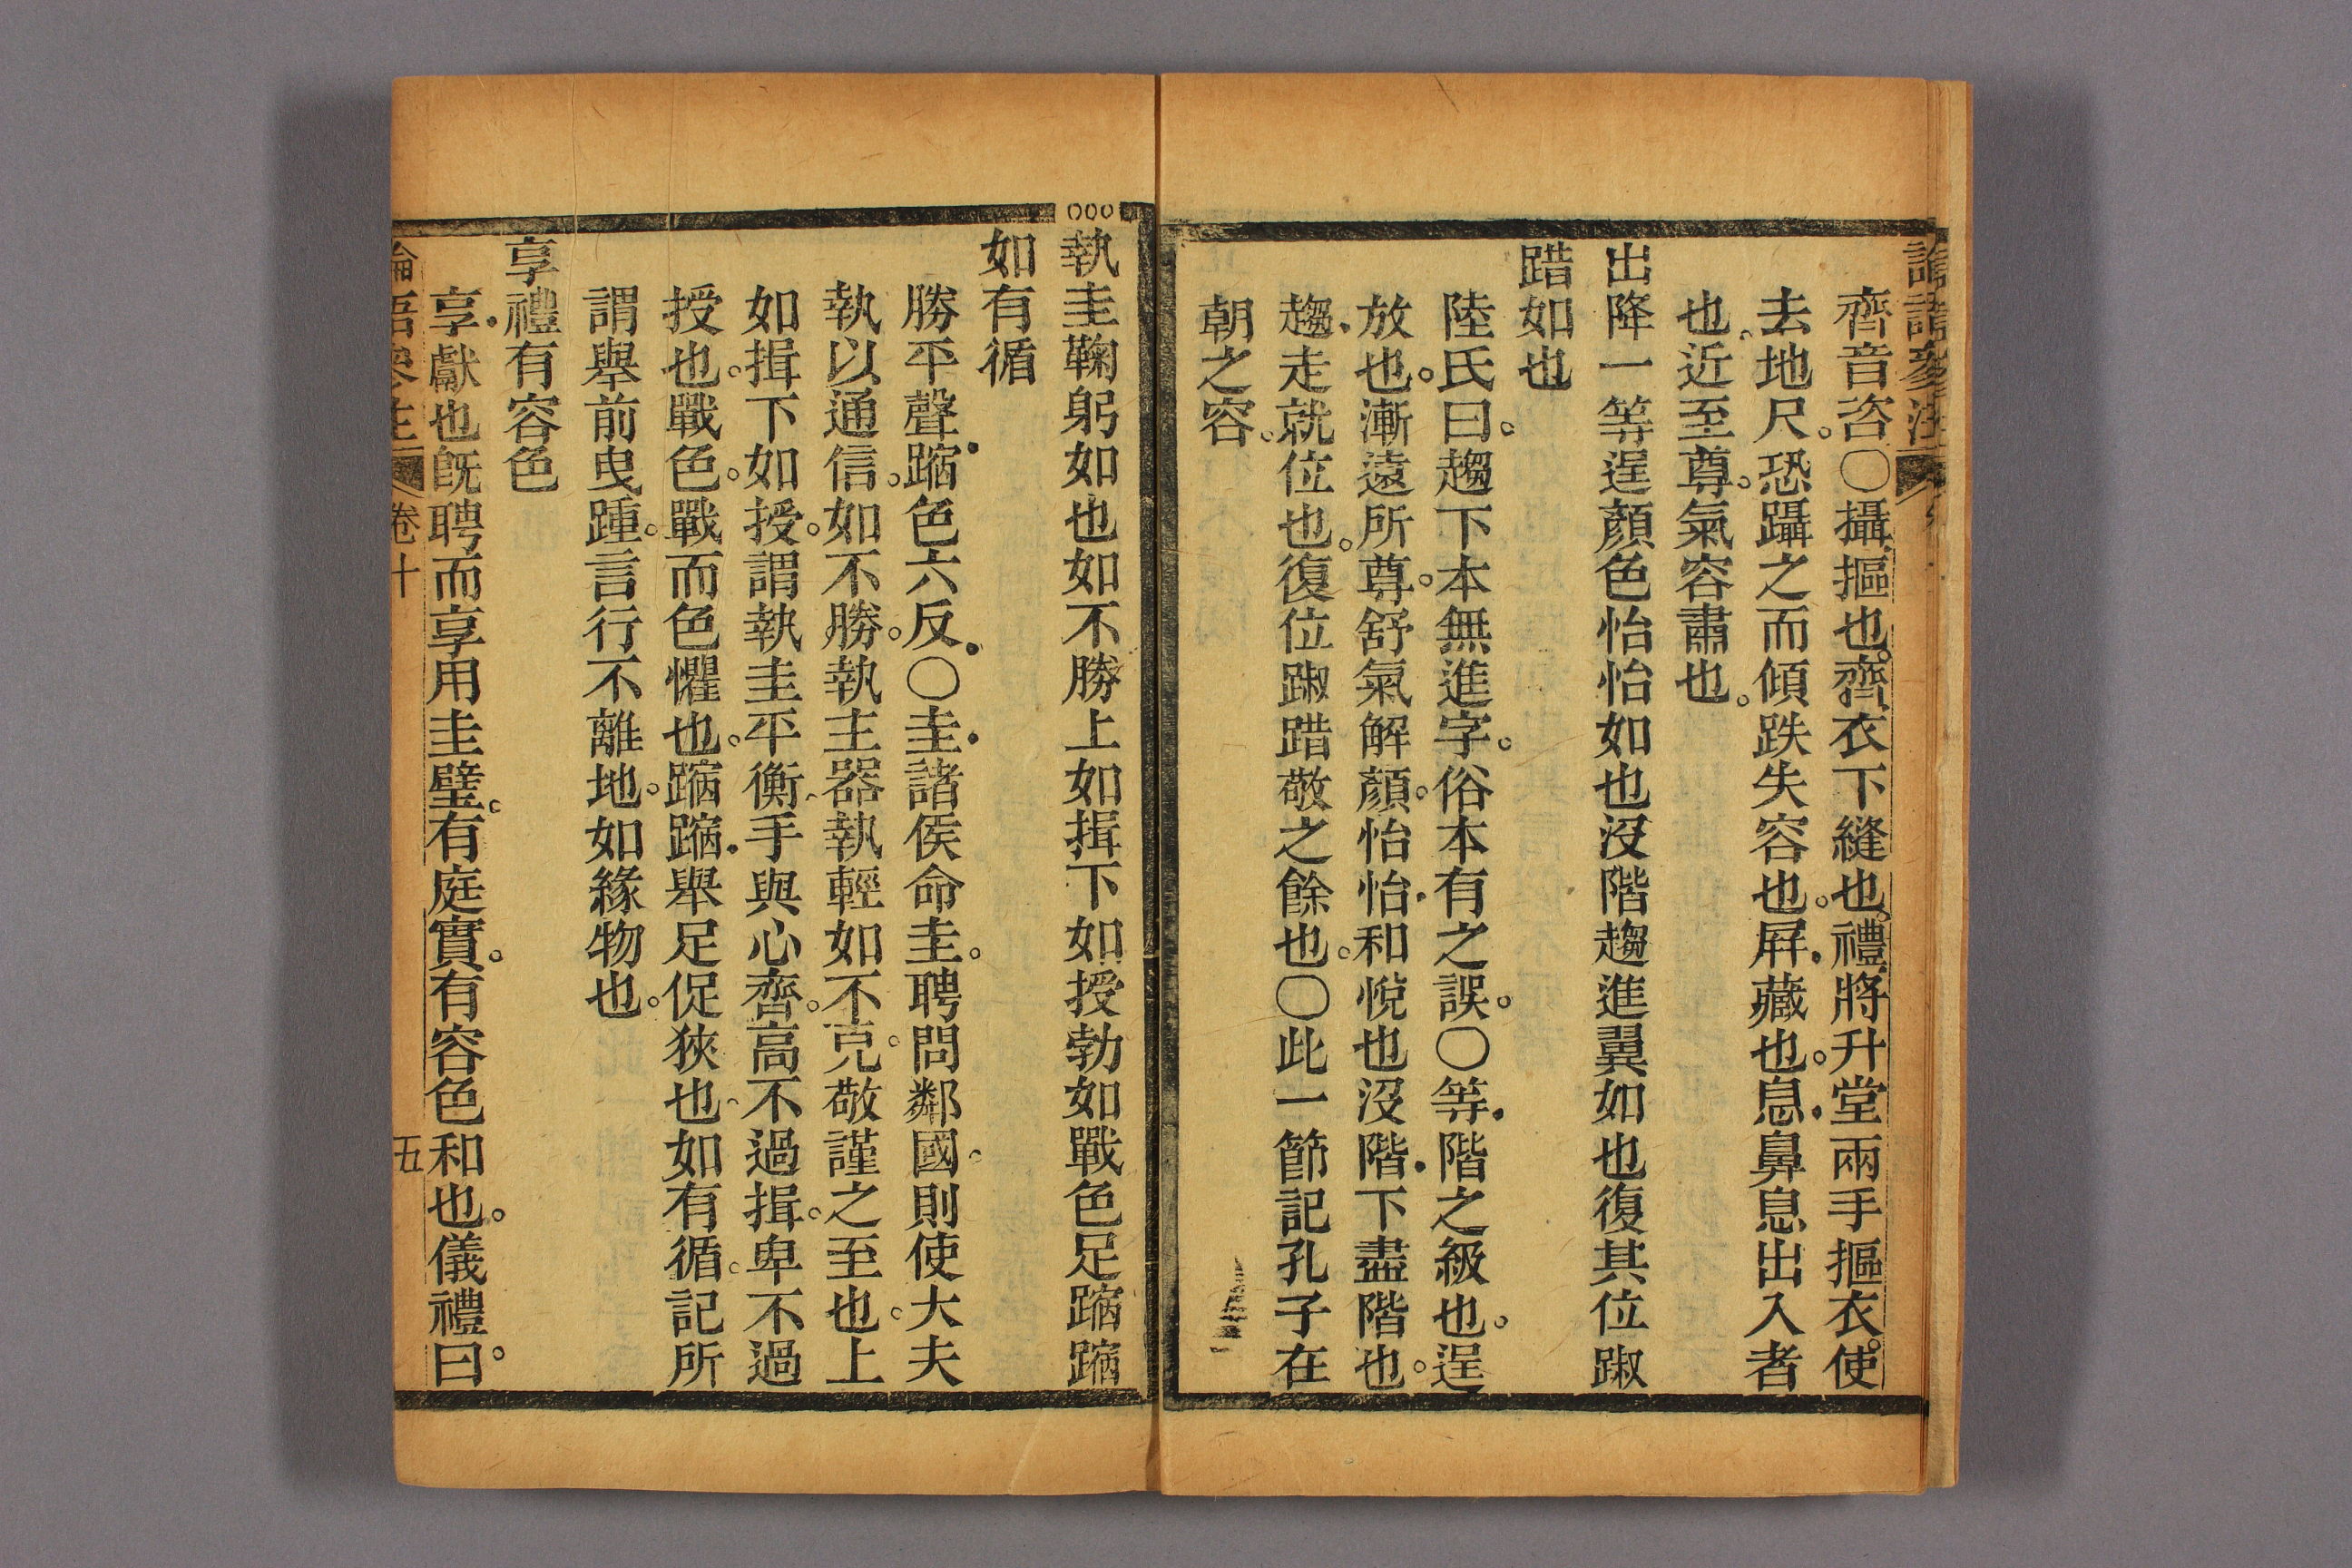 齊音咨〇攝摳也齊衣下縫也禮將升堂兩手摳衣使
去地尺恐躡之而傾跌失容也屛藏也息鼻息出入者
也近至尊氣容肅也
出降一等逞顏色怡怡如也沒階趨進翼如也復其位踧
踖如也
陸氏曰趨下本無進字俗本有之誤〇等階之級也逞
放也漸遠所尊舒氣解顏怡怡和悅也沒階下盡階也
趨走就位也復位踧踖敬之餘也〇此一節記孔子在
朝之容
執圭鞠躬如也如不勝上如揖下如授勃如戰色足蹜蹜
如有循
勝平聲蹜色六反〇圭諸侯命圭聘問鄰國則使大夫
執以通信如不勝執主器執輕如不克敬謹之至也上
如揖下如授謂執圭平衡手與心齊高不過揖卑不過
授也戰色戰而色懼也蹜蹜舉足促狹也如有循記所
謂舉前曳踵言行不離地如緣物也
享禮有容色
享獻也旣聘而享用圭璧有庭實有容色和也儀禮曰
卷十
五